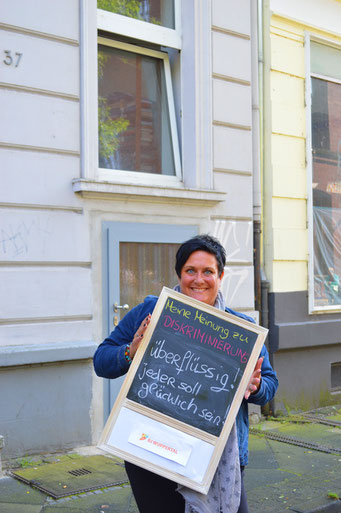 37
Meine Meinung zu
DISKRIMINIERUNG
überflüssig!
jeder soll
glücklich sein